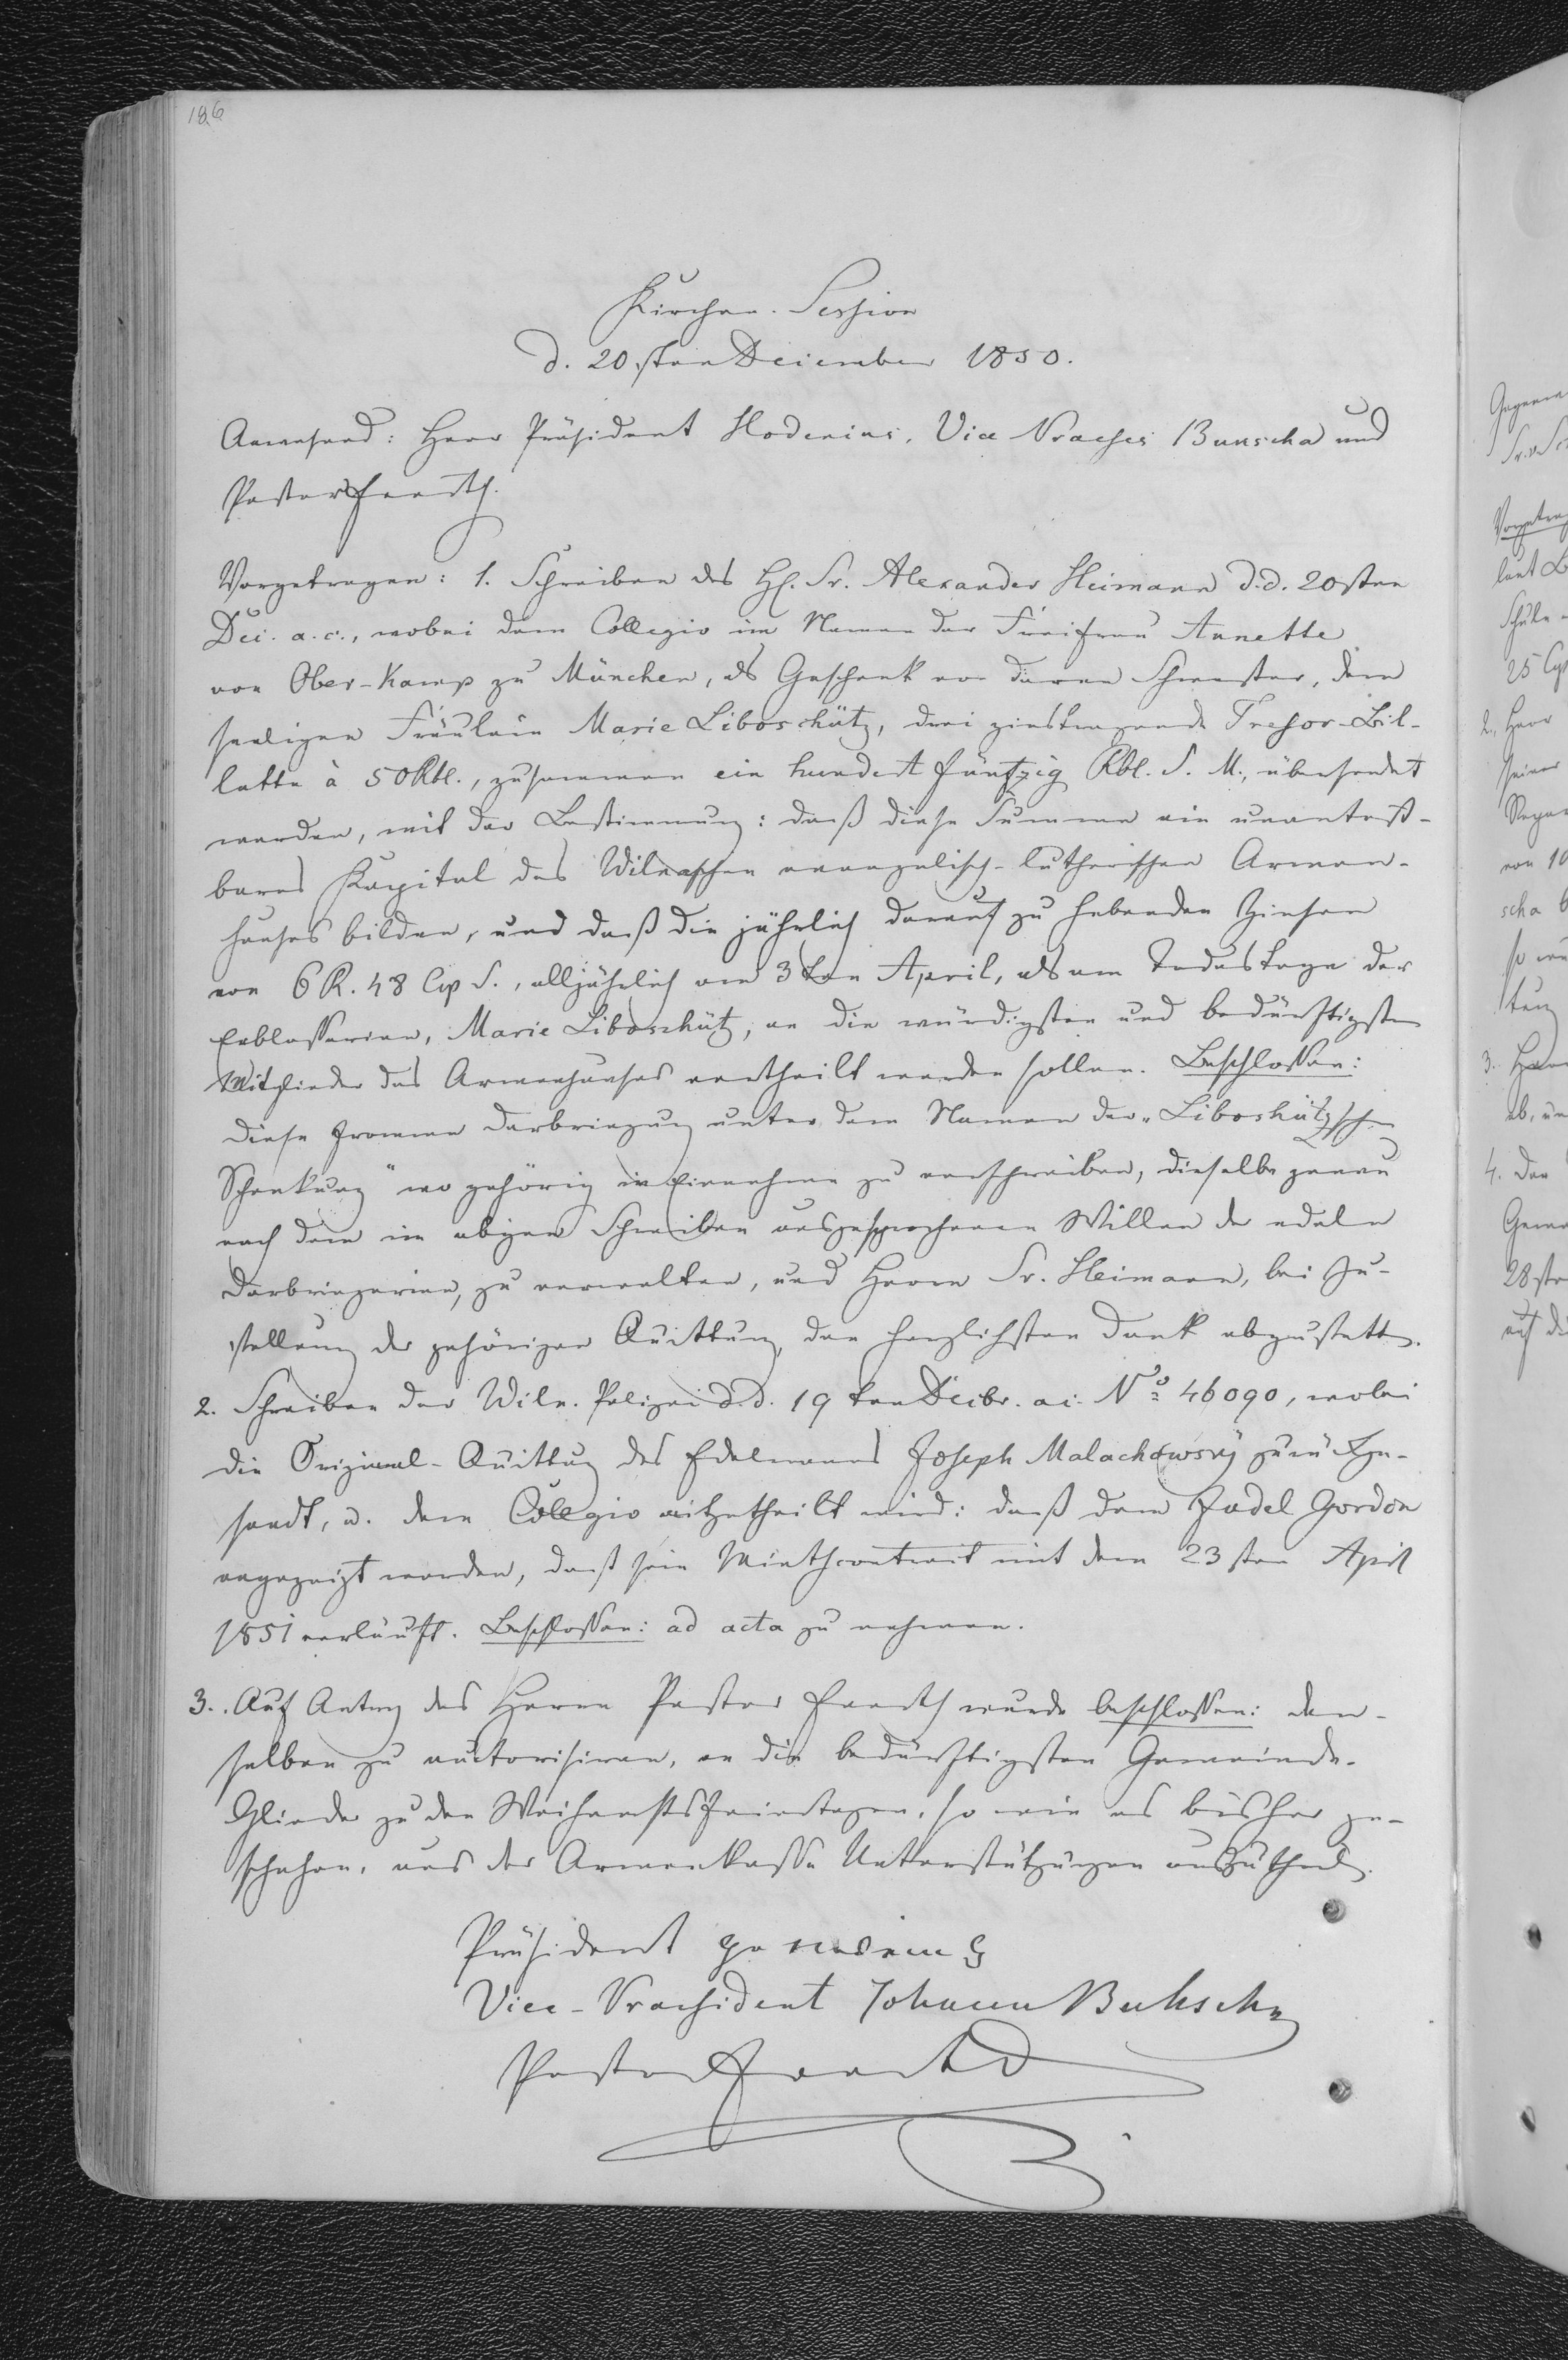 186
Kirchen-Session
d. 20sten December 1850.
Anwesend: Herr Präsident Hoderius, Vice Praeses Bunscha und
Pastor
Vorgetragen: 1. Schreiben des H. Dr. Alexander Heimann d.d. 20sten
Dec. a.c., wobei dem Collegio im Namen der Freifrau Annette
von Ober-Kamp zu München, als Geschenk von deren Schwester, dem
seeligen Fräulein Marie Liboschütz, drei zinstragende Tresor-Bil-
lette à 50 Rbl., zusammen ein hundert fünfzig Rbl. S. M., übersendet
werden, mit der Bestimmung: daß diese Summe ein unantast-
bares Kapital des Wilnaschen evangelisch-lutherischen Armen-
hauses bilden, und daß die jährlich darauf zu hebenden Zinsen
von 6 R. 48 Cop S., alljährlich am 3ten April, als am Todestage der
Erblasserin, Marie Liboschütz, an die würdigsten und bedürftigsten
Mitglieder des Armenhauses vertheilt werden sollen. Beschlossen:
diese fromme Darbringung unter dem Namen der „Liboshützsche
Schenkung" wo gehörig in Einnahme zu verschreiben, dieselbe genau
nach dem im obigen Schreiben ausgesprochenen Willen der edeln
Darbringerin, zu verwalten, und Herrn Dr. Heimann, bei Zu-
stellung der gehörigen Quittung, den herzlichsten Dank abzustatten.
2. Schreiben der Wiln. Polizei d.d. 19ten Decbr. a.c. No 46090, wobei
die Original-Quittung des Edelmanns Joseph Malachowsky zurückge-
sandt, u. dem Collegio mitgetheilt wird: daß dem Judel Gordon
angezeigt worden, daß sein Miethcontract mit dem 23sten April
1851 verläuft. Beschlossen: ad acta zu nehmen.
3. Auf Antrag des Herrn Pastor wurde beschlossen: den-
selben zu autorisiren, an die bedürftigsten Gemeinde-
Glieder zu den Weihnachtsfeiertagen, so wie es bisher ge-
schehen, aus der Armenkasse Unterstützungen auszutheilen.
Präsident
Vice-Praesident Johann Buhscha
Pastor